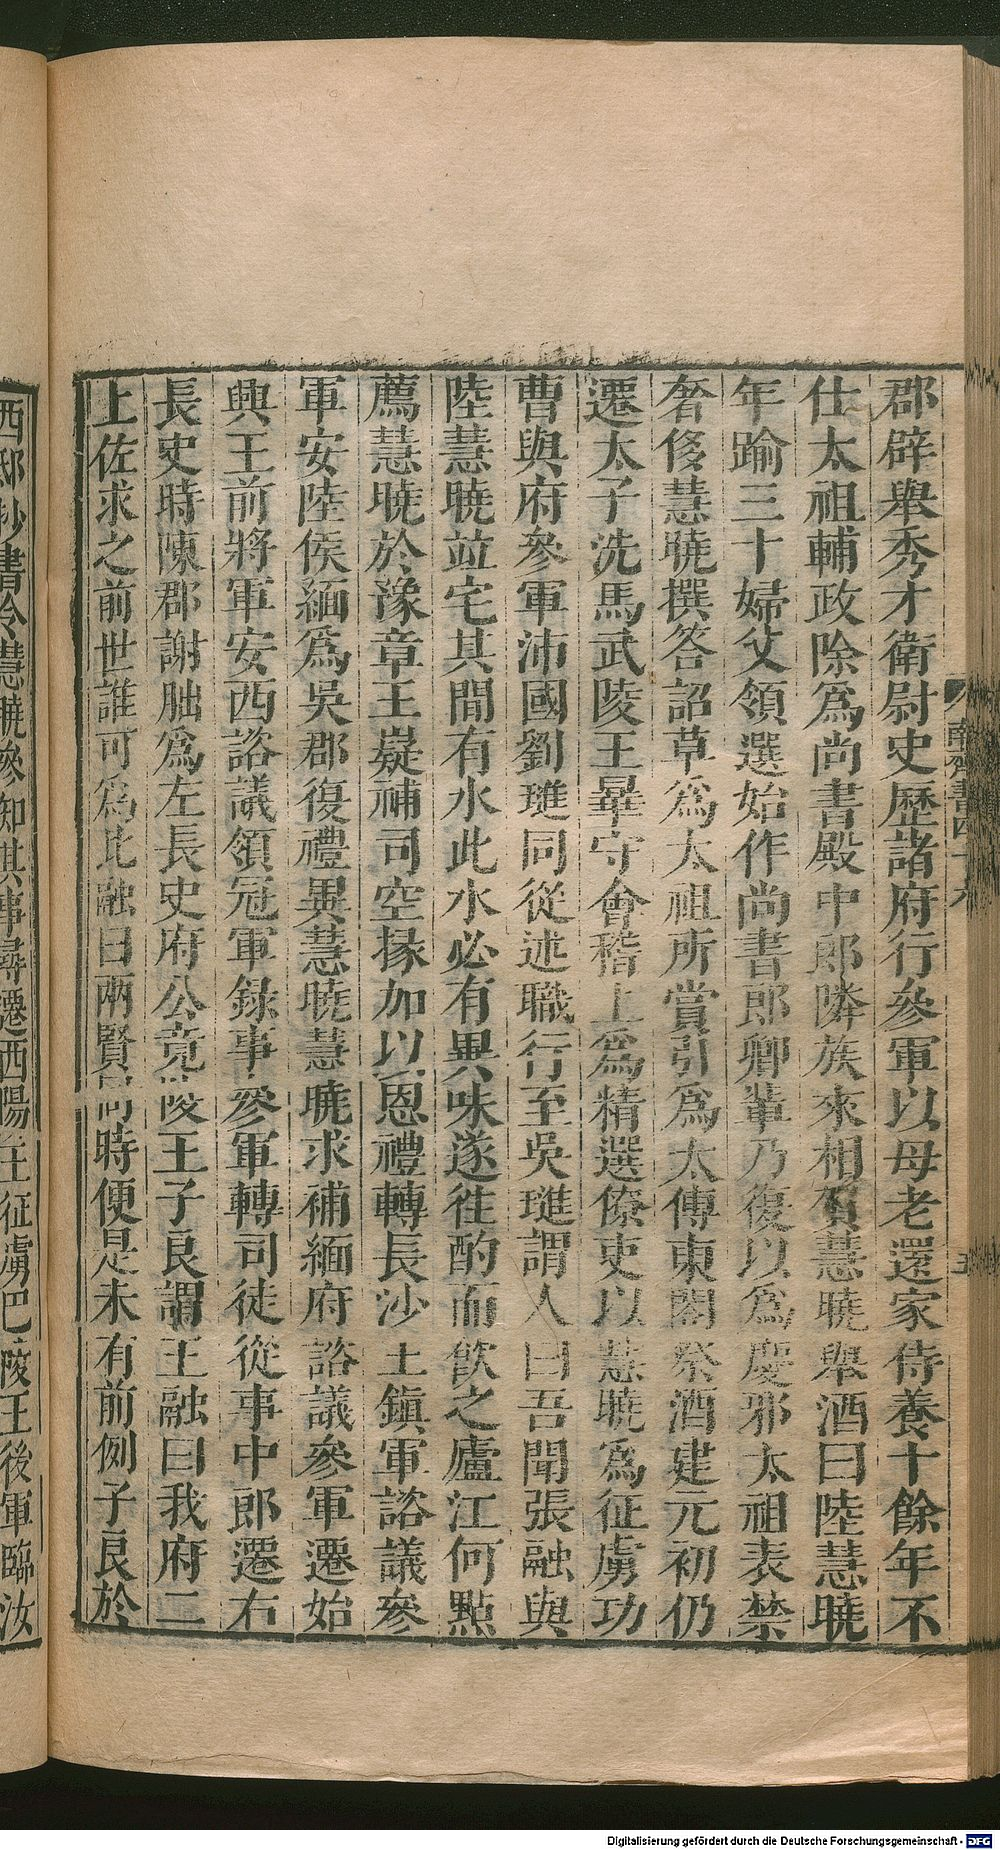 郡辟舉秀才衛尉史歷諸府行參軍以母老還家侍養十餘年不
仕太祖輔政除爲尚書殿中郎隣族來相賀慧曉舉酒曰陸慧曉
年踰三十婦父領選始作尚書郎卿輩乃復以爲慶邪太祖表禁
奢侈慧曉撰答詔草爲太祖所賞引爲太傅東閤祭酒建元初仍
遷太子洗馬武陵王曅守會稽上爲精選僚吏以慧曉爲征虜功
曹與府參軍沛國劉璡同從述職行至吳璡謂人曰吾聞張融與
陸慧曉竝宅其間有水此水必有異味遂往酌而飲之廬江何點
薦慧曉於豫章王嶷補司空掾加以恩禮轉長沙王鎮軍諮議參
軍安陸侯緬爲吳郡復禮異慧曉慧曉求補緬府諮議參軍遷始
興王前將軍安西諮議領冠軍録事參軍轉司徒從事中郎遷右
長史時陳郡謝朏爲左長史府公竟陵王子良謂王融曰我府二
上佐求之前世誰可爲比融曰兩賢同時便是未有前例子良於
西邸抄書令慧曉參知其事尋遷西陽王征虜巴陵王後軍臨汝
南齊書四十六
五
Digitalisierung gefördert durch die Deutsche Forschungsgemeinschaft - DFG